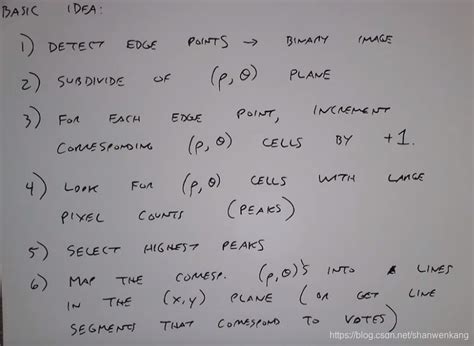 BASIC IDEA:
1) DETECT EDGE POINTS → BINARY IMAGE
2) SUBDIVIDE OF (ρ, θ) PLANE
3) FOR EACH EDGE POINT, INCREMENT
CORRESPONDING (ρ, θ) CELLS BY +1.
4) LOOK FOR (ρ, θ) CELLS WITH LARGE
PIXEL COUNTS (PEAKS)
5) SELECT HIGHEST PEAKS
6) MAP THE CORRESP. (ρ, θ)'S INTO LINES
IN THE (x, y) PLANE (OR GET LINE
SEGMENTS THAT CORRESPOND TO VOTES)
https://blog.csdn.net/shanwenkang